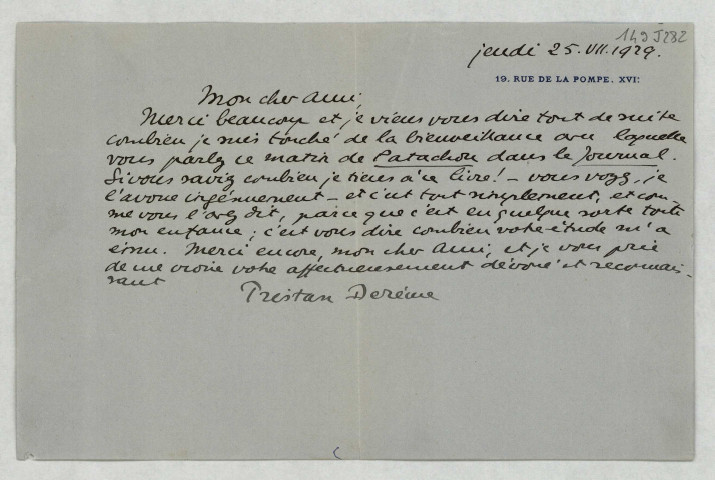 149 J 282
jeudi 25.VII.1929.
19, RUE DE LA POMPE. XVIE
Mon cher Ami,
Merci beaucoup et je viens vous dire tout de suite
combien je suis touché de la bienveillance avec laquelle
vous parlez ce matin de Patachou dans le Journal.
Si vous saviez combien je tiens à ce livre! – vous voyez, je
l'avoue ingénuement – et c'est tout simplement, et com-
me vous l'avez dit, parce que c'est en quelque sorte toute
mon enfance; c'est vous dire combien votre étude m'a
ému. Merci encore, mon cher Ami, et je vous prie
de me croire votre affectueusement dévoué et reconnais-
sant
Tristan Derème